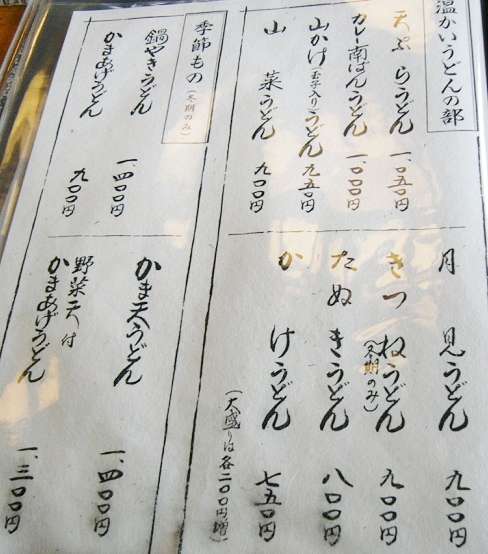 温かいうどんの部
天ぷらうどん 一、〇五〇円
カレー南ばんうどん 一、〇〇〇円
山かけ(玉子入り)うどん 九五〇円
山菜うどん 九〇〇円
月見うどん 九〇〇円
きつねうどん(冬期のみ) 九〇〇円
たぬきうどん 八〇〇円
かけうどん 七五〇円
(大盛りは各二〇〇円増)
季節もの(冬期のみ)
鍋やきうどん 一、四〇〇円
かまあげうどん 九〇〇円
かま天うどん 一、四〇〇円
野菜天付
かまあげうどん 一、三〇〇円